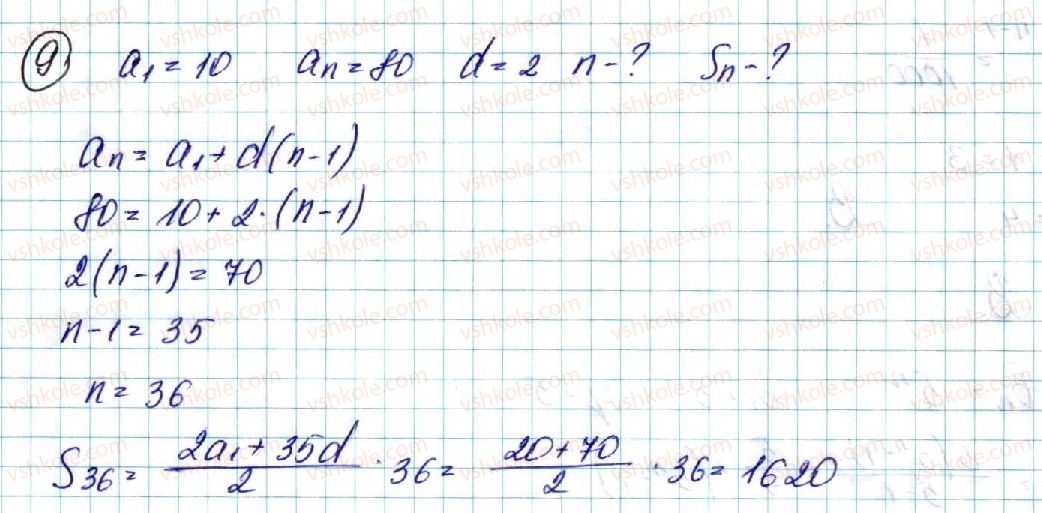 9) a₁ = 10 aₙ = 80 d = 2 n - ? Sₙ - ?
aₙ = a₁ + d(n-1)
80 = 10 + 2·(n-1)
2(n-1) = 70
n-1 = 35
n = 36
S₃₆ = (2a₁ + 35d)/2 · 36 = (20+70)/2 · 36 = 1620
vshkole.com